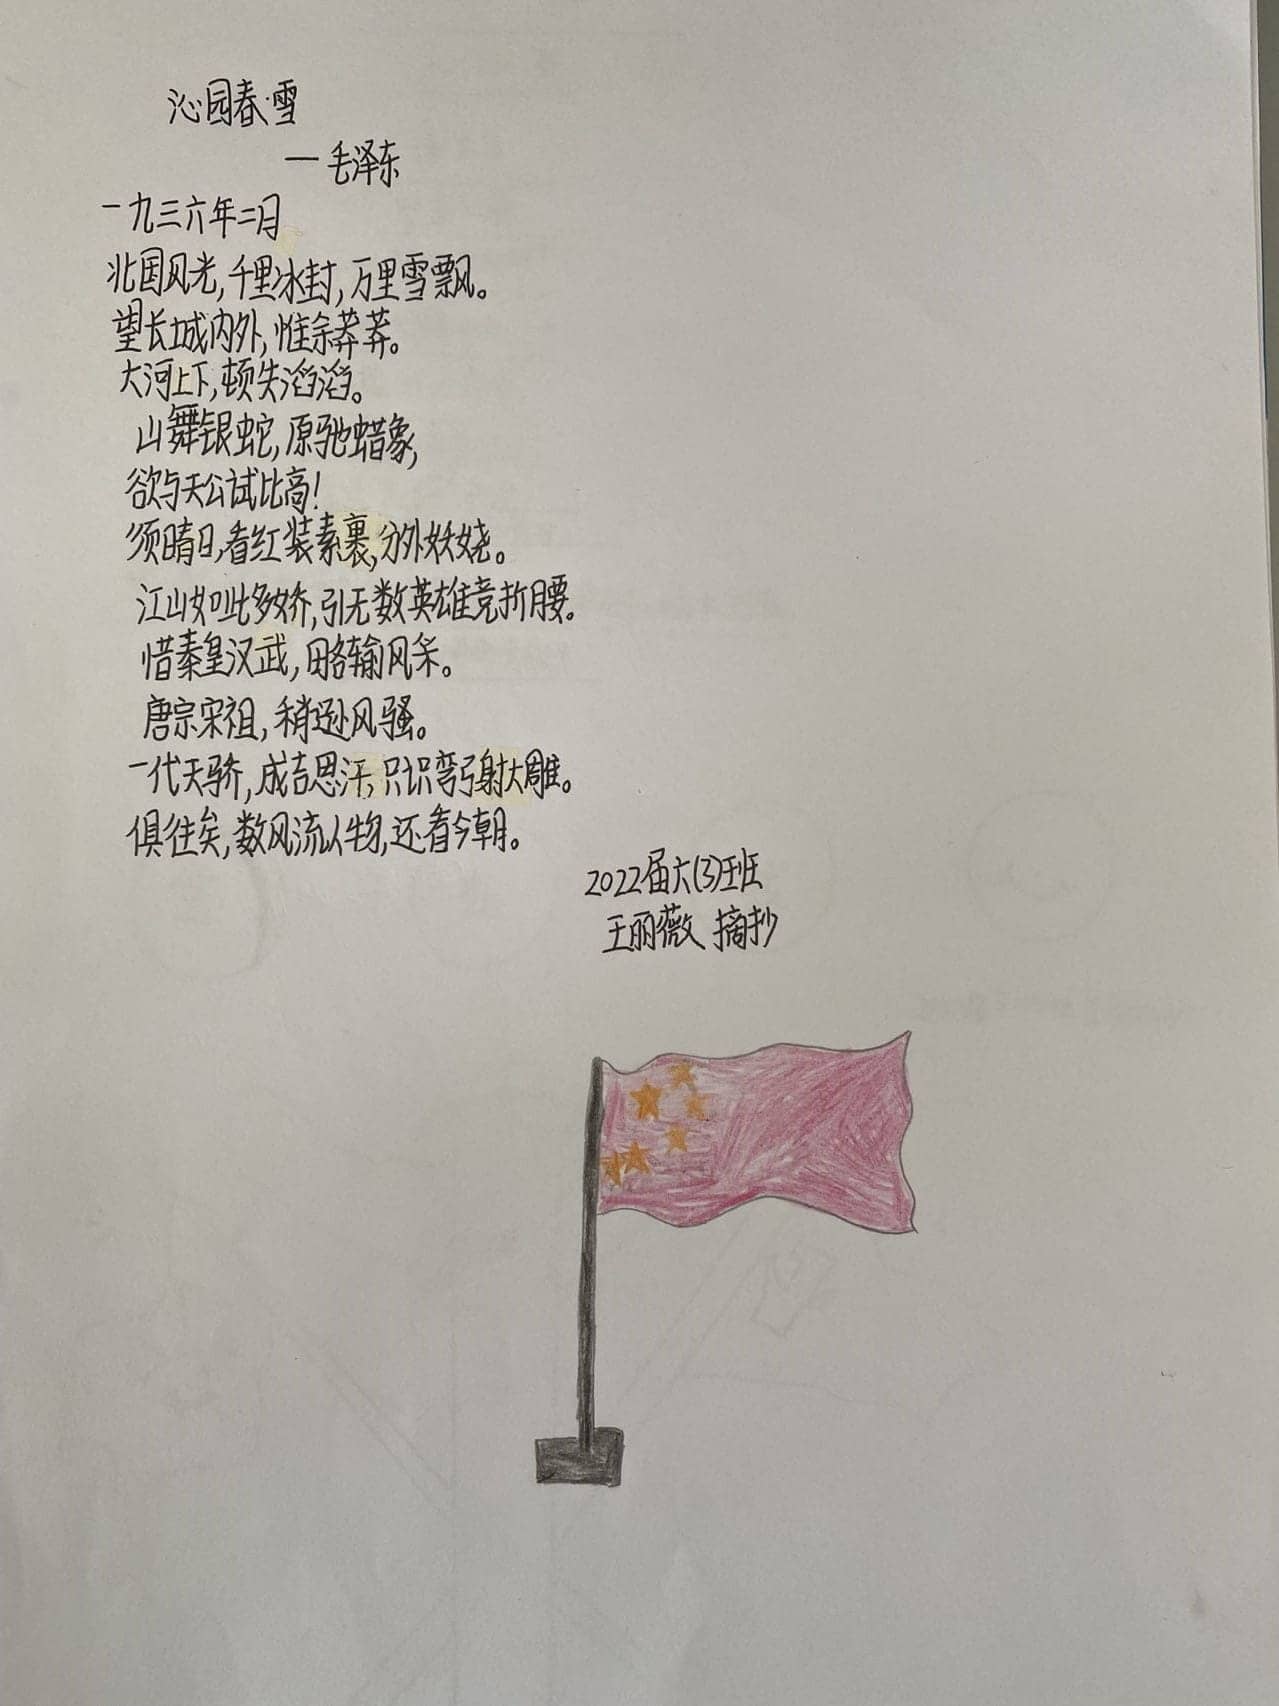 沁园春·雪
一毛泽东
一九三六年二月
北国风光,千里冰封,万里雪飘。
望长城内外,惟余莽莽。
大河上下,顿失滔滔。
山舞银蛇,原驰蜡象,
欲与天公试比高!
须晴日,看红装素裹,分外妖娆。
江山如此多娇,引无数英雄竞折腰。
惜秦皇汉武,略输风采。
唐宗宋祖,稍逊风骚。
一代天骄,成吉思汗,只识弯弓射大雕。
俱往矣,数风流人物,还看今朝。
2022届六(3)班
王丽薇 摘抄